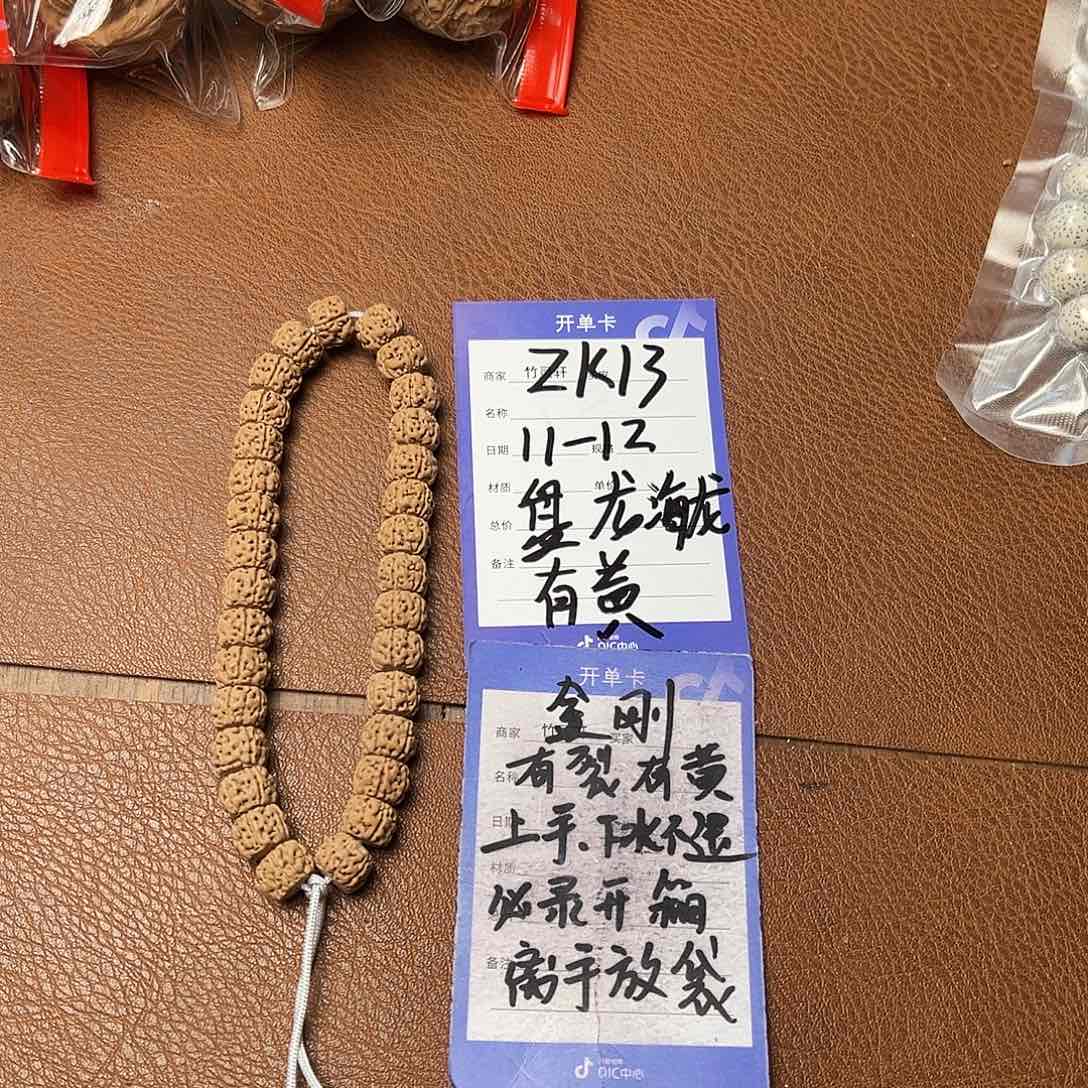 开单卡
商家 竹 轩 ZK13
名称
日期 11-12 规格
材质 单价
盘龙海龙
总价
备注
有黄
QIC中心
开单卡
金刚
商家 竹 买家
有裂有黄
名称
日期
上手.下水不退
材质
必录开箱
备注
离手放袋
QIC中心